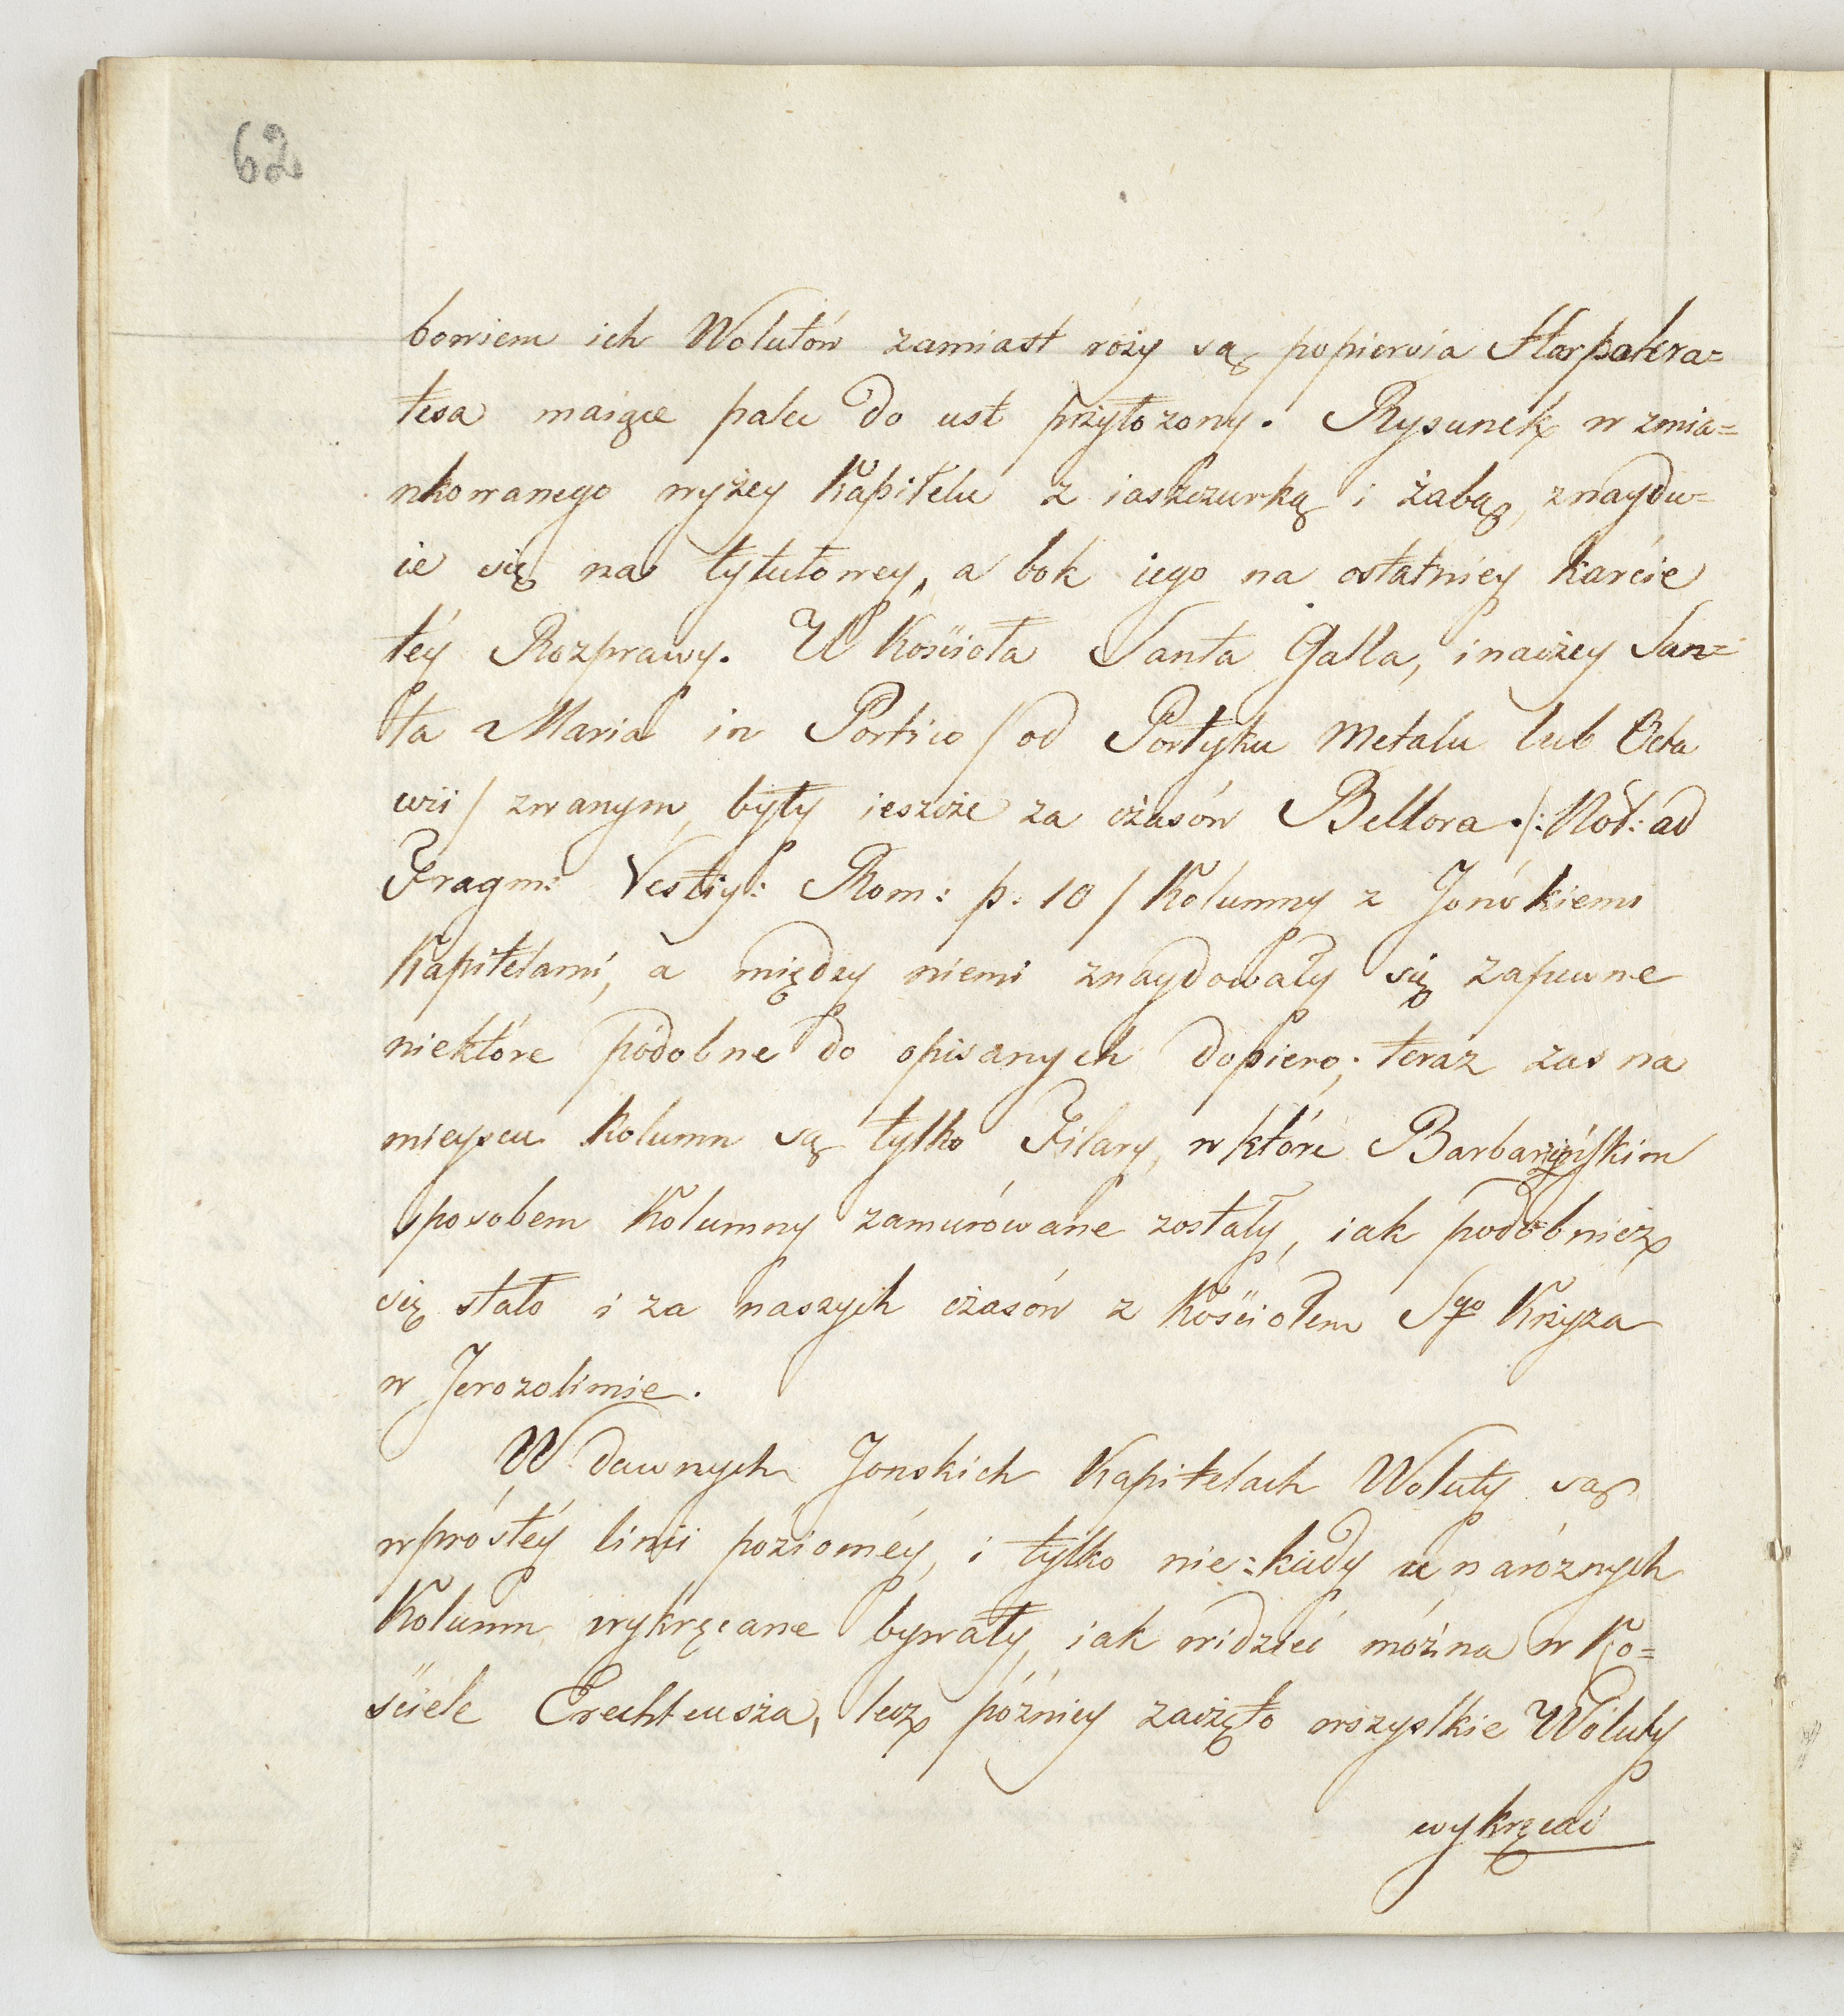 62
bowiem ich Wolutów zamiast róży są popiersia Harpokra=
tesa maiące palec do ust przyłozony. Rysunek w zmia=
nkowanego wyżey Kapitelu z iaszczurką i żabą, znaydu=
ie się na tytułowey, a bok iego na ostatniey karcie
téy Rozprawy. U Kościoła Santa Galla, inaczey San=
ta Maria in Portico / od Portyku Metalu lub Octa
wii / zwanym, były ieszcze za czasów Bellora. /: Not: ad
Fragm: Vestig: Rom: p. 10 / Kolumny z Jońskiemi
Kapitelami, a między niemi znaydowały się zapewne
niektóre podobne do opisanych dopiero; teraz zas na
mieyscu Kolumn są tylko Filary, w które Barbarzyńskim
sposobem Kolumny zamurówane zostały, iak podobnież
się stało i za naszych czasów z Kościołem Sgo Krzyza
w Jerozolimie.
W dawnych Jonskich Kapitelach Woluty są
w prostéy linii poziomey, i tylko nie=kiedy u naróznych
Kolumn wykręcane bywały, iak widzieć można w Ko=
ściele Erechteusza, lecz pózniey zaczęto wszystkie Woluty
wykręcać